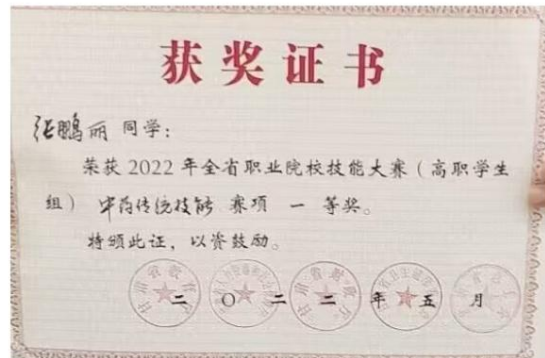 获奖证书
张鹏丽 同学：
荣获 2022 年全省职业院校技能大赛（高职学生
组） 中药传统技能 赛项 一 等奖。
特颁此证，以资鼓励。
二〇二二年五月
甘肃省教育厅